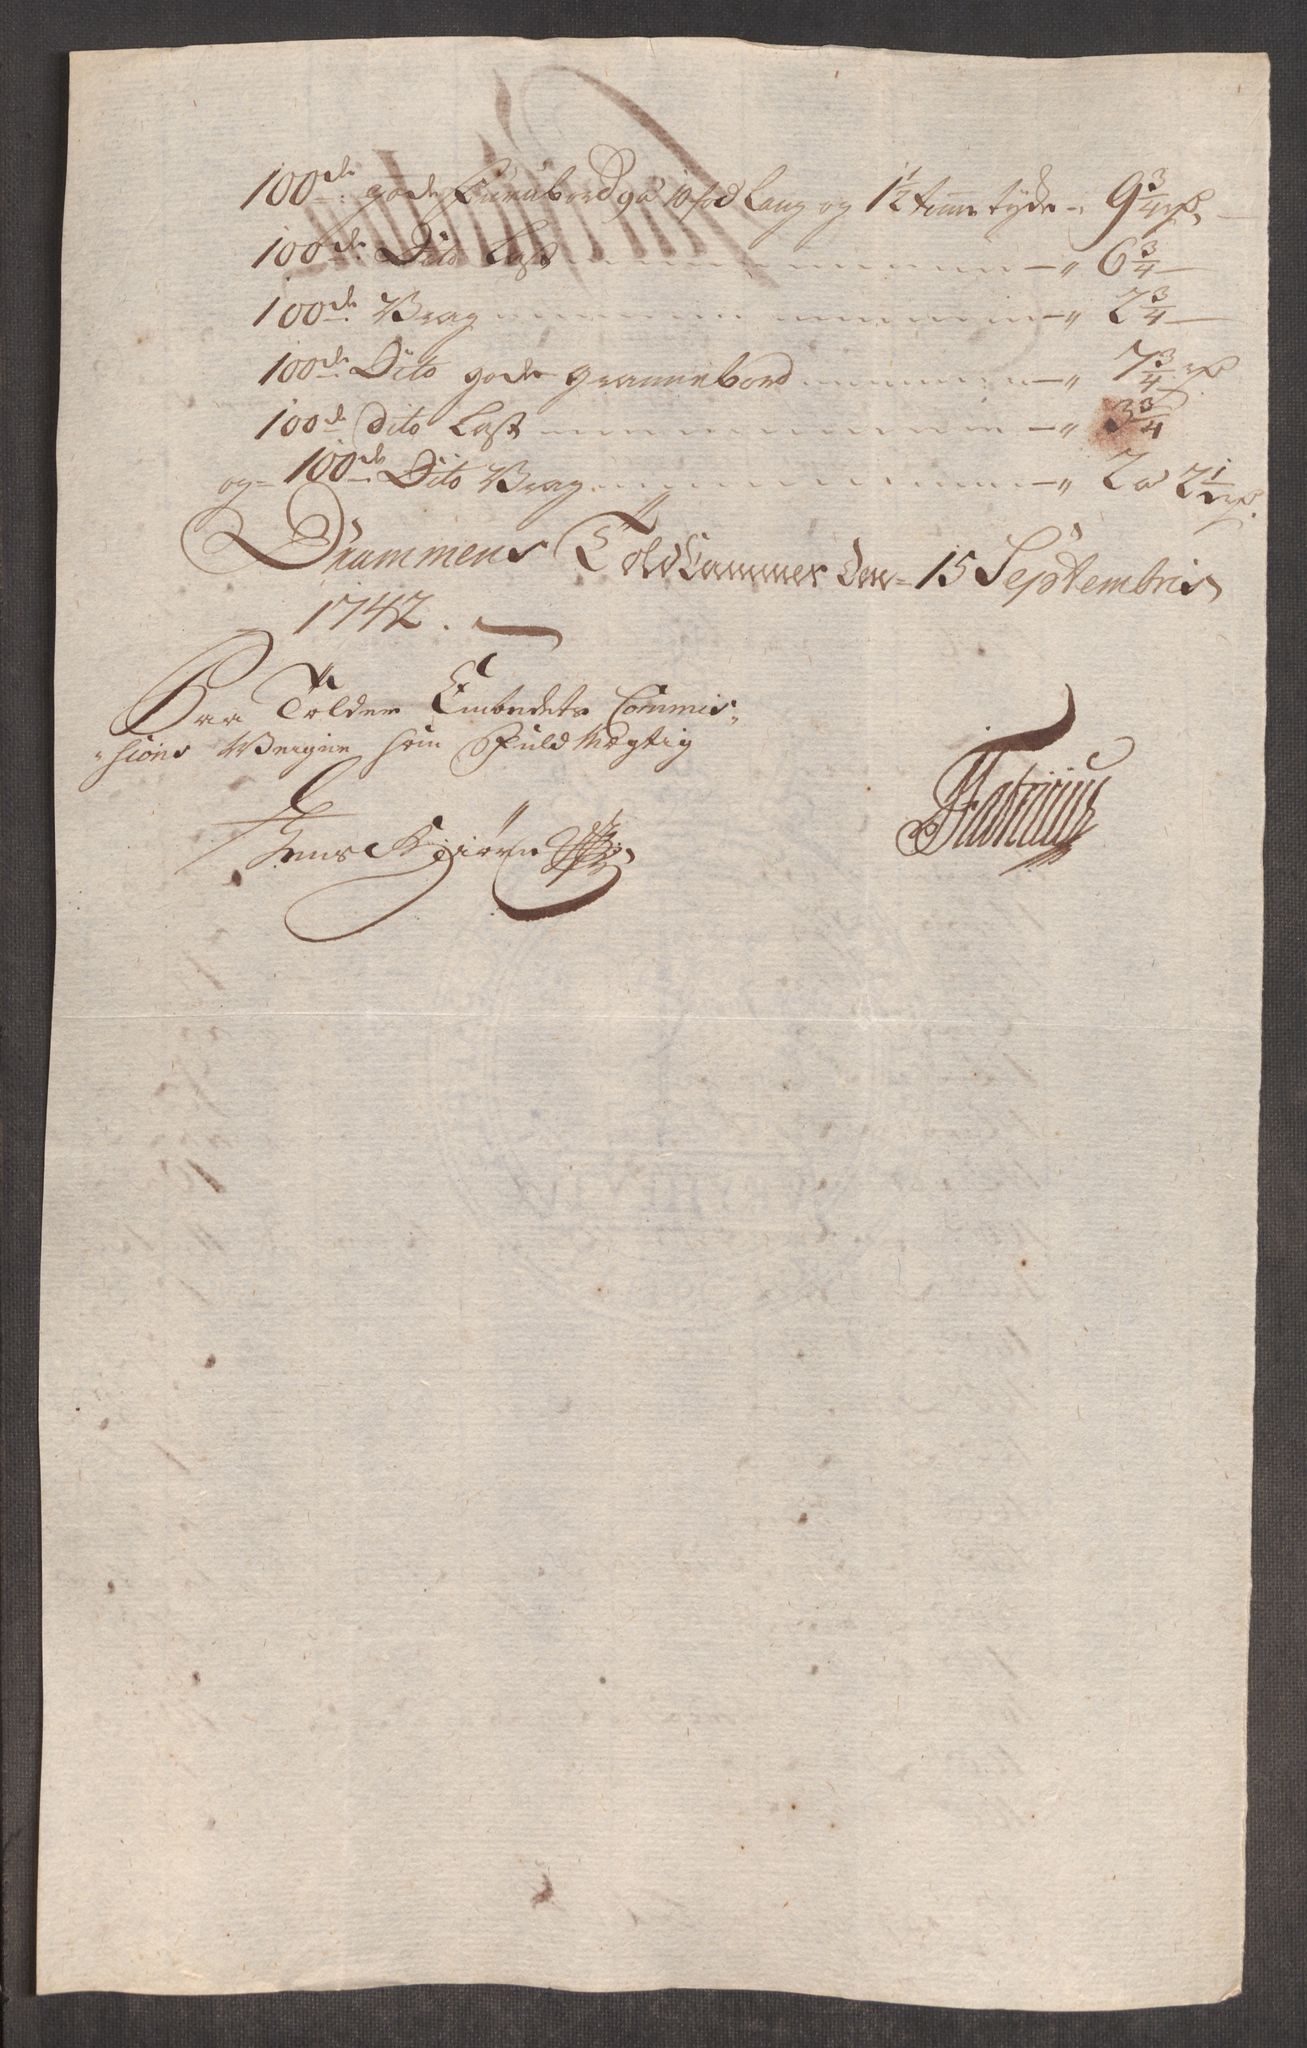 100de gode Furubord 9 a 10 fod Lang og 1 1/2 tomme tyche - 9 3/4 rd
100de Dito Last - " 6 3/4 -
100de Vrag - " 2 3/4 -
100de Dito gode grannebord - " 7 3/4 rd
100de dito Last - " 3 3/4
og 100de Dito Vrag - " 2 a 2 1/2 rd.
Drammens Toldkammer den 15 Septembris
1742.
Paa Tolder Embedets Commis„
„sions Weigne som Fuldmægtig
Jens Kjørn